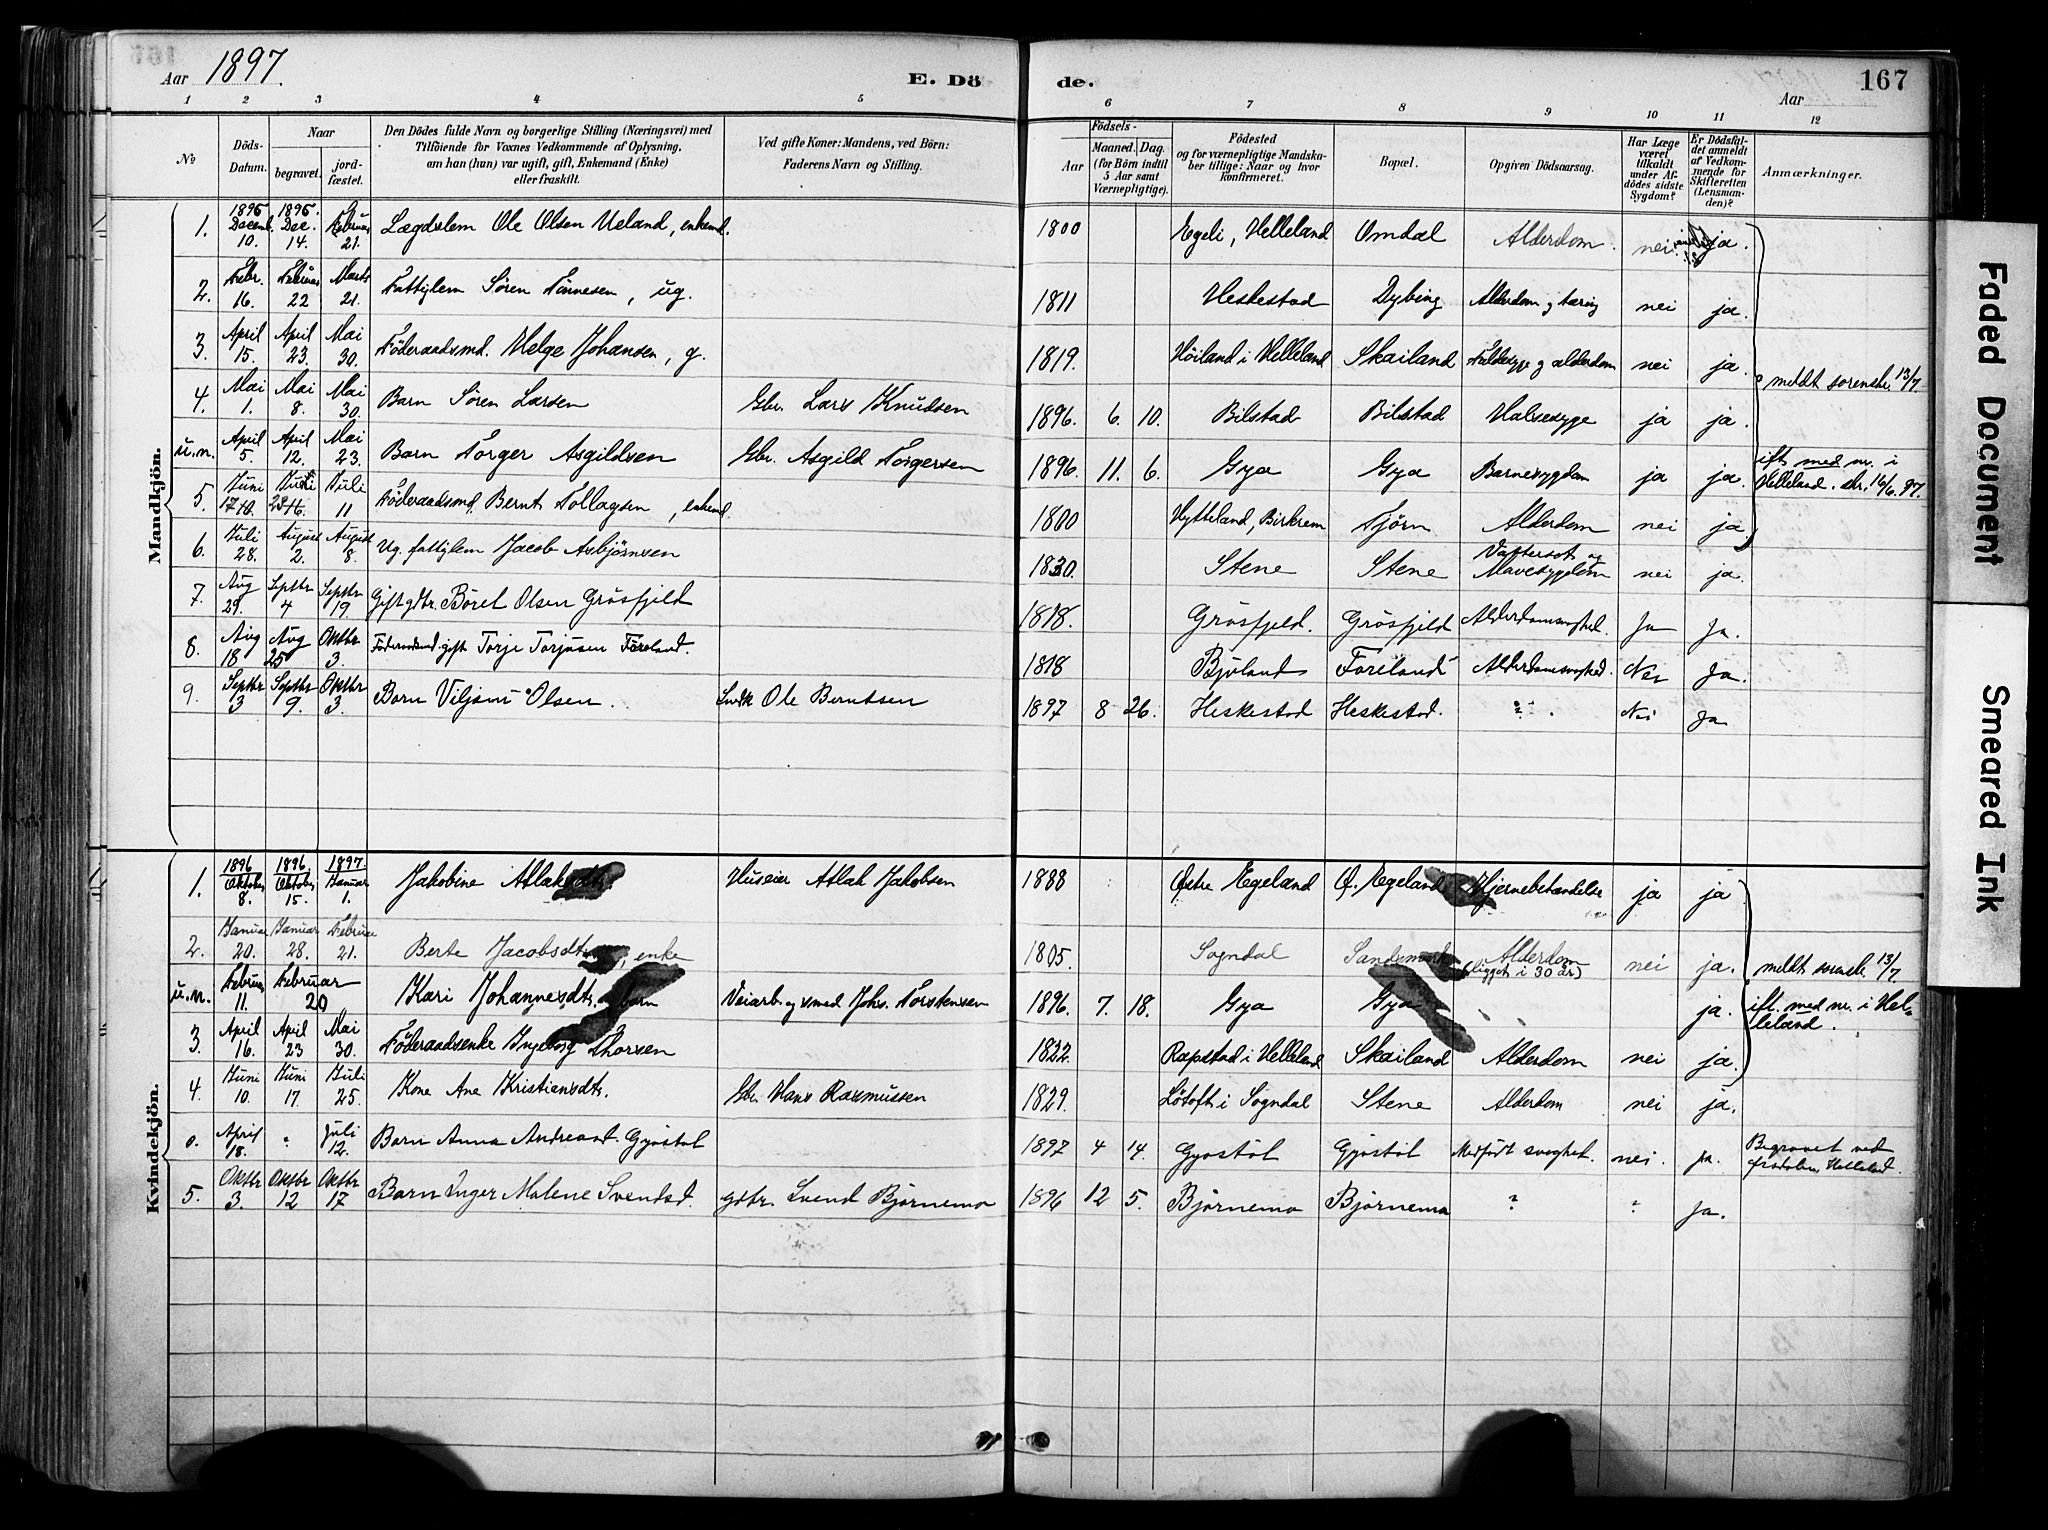 Aar 1897.
E. Dö
de.
Aar
167
1 2 3 4 5 6 7 8 9 10 11 12
№
Döds-Datum.
Naar
begravet.
jord-fæstet.
Den Dödes fulde Navn og borgerlige Stilling (Næringsvei) med
Tilföiende for Voxnes Vedkommende af Oplysning,
om han (hun) var ugift, gift, Enkemand (Enke)
eller fraskilt.
Ved gifte Koner: Mandens, ved Börn:
Faderens Navn og Stilling.
Födsels-
Aar
Maaned. Dag.
(for Börn indtil
5 Aar samt
Værnepligtige).
Födested
og for værnepligtige Mandska-
ber tillige: Naar og hvor
konfirmeret.
Bopæl.
Opgiven Dödsaarsag.
Har Læge
været
tilkaldt
under Af-
dödes sidste
Sygdom?
Er Dödsfal-
det anmeldt
af Vedkom-
mende for
Skifteretten
(Lensman-
den)?
Anmærkninger.
Mandkjön.
1. Decemb. 10. Dec. 14. Februar 21. Lægdslem Ole Olsen Ueland, enkemd. 1800 Egeli, Helleland Omdal Alderdom. nei. ja.
2. Febr. 16. Februar 22 Marts 21. Fattiglem Sören Tönnesen, ug. 1811 Heskestad Dybing Alderdom og tæring nei ja.
3. April 15. April 23. Mai 30. Föderaadsmd. Helge Johansen, g. 1819. Höiland i Helleland Skailand Faldesyge og alderdom nei ja.
meldt sorenskr. 13/7.
4. Mai 1. Mai 8. Mai 30. Barn Sören Larsen Gbr. Lars Knudsen 1896. 6. 10. Bilstad Bilstad Halssyge ja ja.
u.n. April 5. April 12. Mai 23. Barn Torger Asgildsen Gbr. Asgild Torgersen 1896. 11. 6. Gya Gya Barnesygdom ja ja. ift. med nr. i
Helleland. skr. 16/6. 97.
5. Juni Juli 11 Föderaadsmd. Bernt Tollagsen, enkemd. 1800 Hytteland, Birkrem Tjörn Alderdom nei ja.
6. Juli 28. August 2. August 8. Ug. fattiglem Jacob Asbjörnsen 1830. Stene Stene Vattersot og
Mavesygdom nei ja.
7. Aug 29. Septbr 4 Septbr 19. Gift gdbr. Börel Olsen Grösfjeld 1818. Grösfjeld. Grösfjeld Alderdomssvaghed. Ja Ja.
8. Aug 18 Aug 25 Oktbr 3. gift Torje Torjusen Föreland. 1818 Bjuland Foreland Alderdomssvaghed. Nei Ja.
9. Septbr 3 Septbr 9. Oktbr 3. Barn Viljam Olsen. Ole Berntsen 1897 8 26. Heskestad Heskestad. ? . Nei Ja
Kvindekjön.
1. 1896 Oktober 8. 1896 Oktober 15. 1897. Januar 1. Jakobine Atlaksdtr. Huseier Atlak Jakobsen 1888 Østre Egeland Ø. Egeland Hjernebetændelse ja ja
2. Januar 20. Januar 28. Februar 21. Berte Jacobsdtr., enke 1805. Sogndal Sandsmark Alderdom
(ligget i 30 år) nei ja. meldt sorenskr. 13/7.
u.n. Februar 11. Februar 20 Kari Johannesdtr. barn Veiarb. og smed Johs. Torstensen 1896. 7. 18. Gya Gya ja. ift. med nr. i Hel-
leland.
3. April 16. April 23 Mai 30. Föderaadsenke Ingeborg Thorsen 1822. Rapstad i Helleland Skailand Alderdom nei ja.
4. Juni 10. Juni 17. Juli 25. Kone Ane Kristiansdtr. Gbr. Hans Rasmussen 1829. Lötoft i Sogndal Stene Alderdom nei ja.
o. April 18. " Juli 12. Barn Anna Andreasd. Gyastöl 1897 4 14. Gyastöl Gyastöl Medfödt svaghed. nei. ja. Begravet ved
Helleland.
5. Oktbr 3. Oktbr 12 Oktbr 17 Barn Inger Malene Svendsd. gdbr. Svend Björnemo 1896 12 5. Björnemo Björnemo ? ? Ja.
Faded Document
Smeared Ink